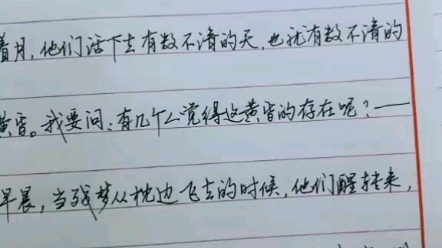 着月,他们活下去有数不清的天,也就有数不清的
黄昏。我要问:有几个人觉得这黄昏的存在呢?——
早晨,当残梦从枕边飞去的时候,他们醒转来,